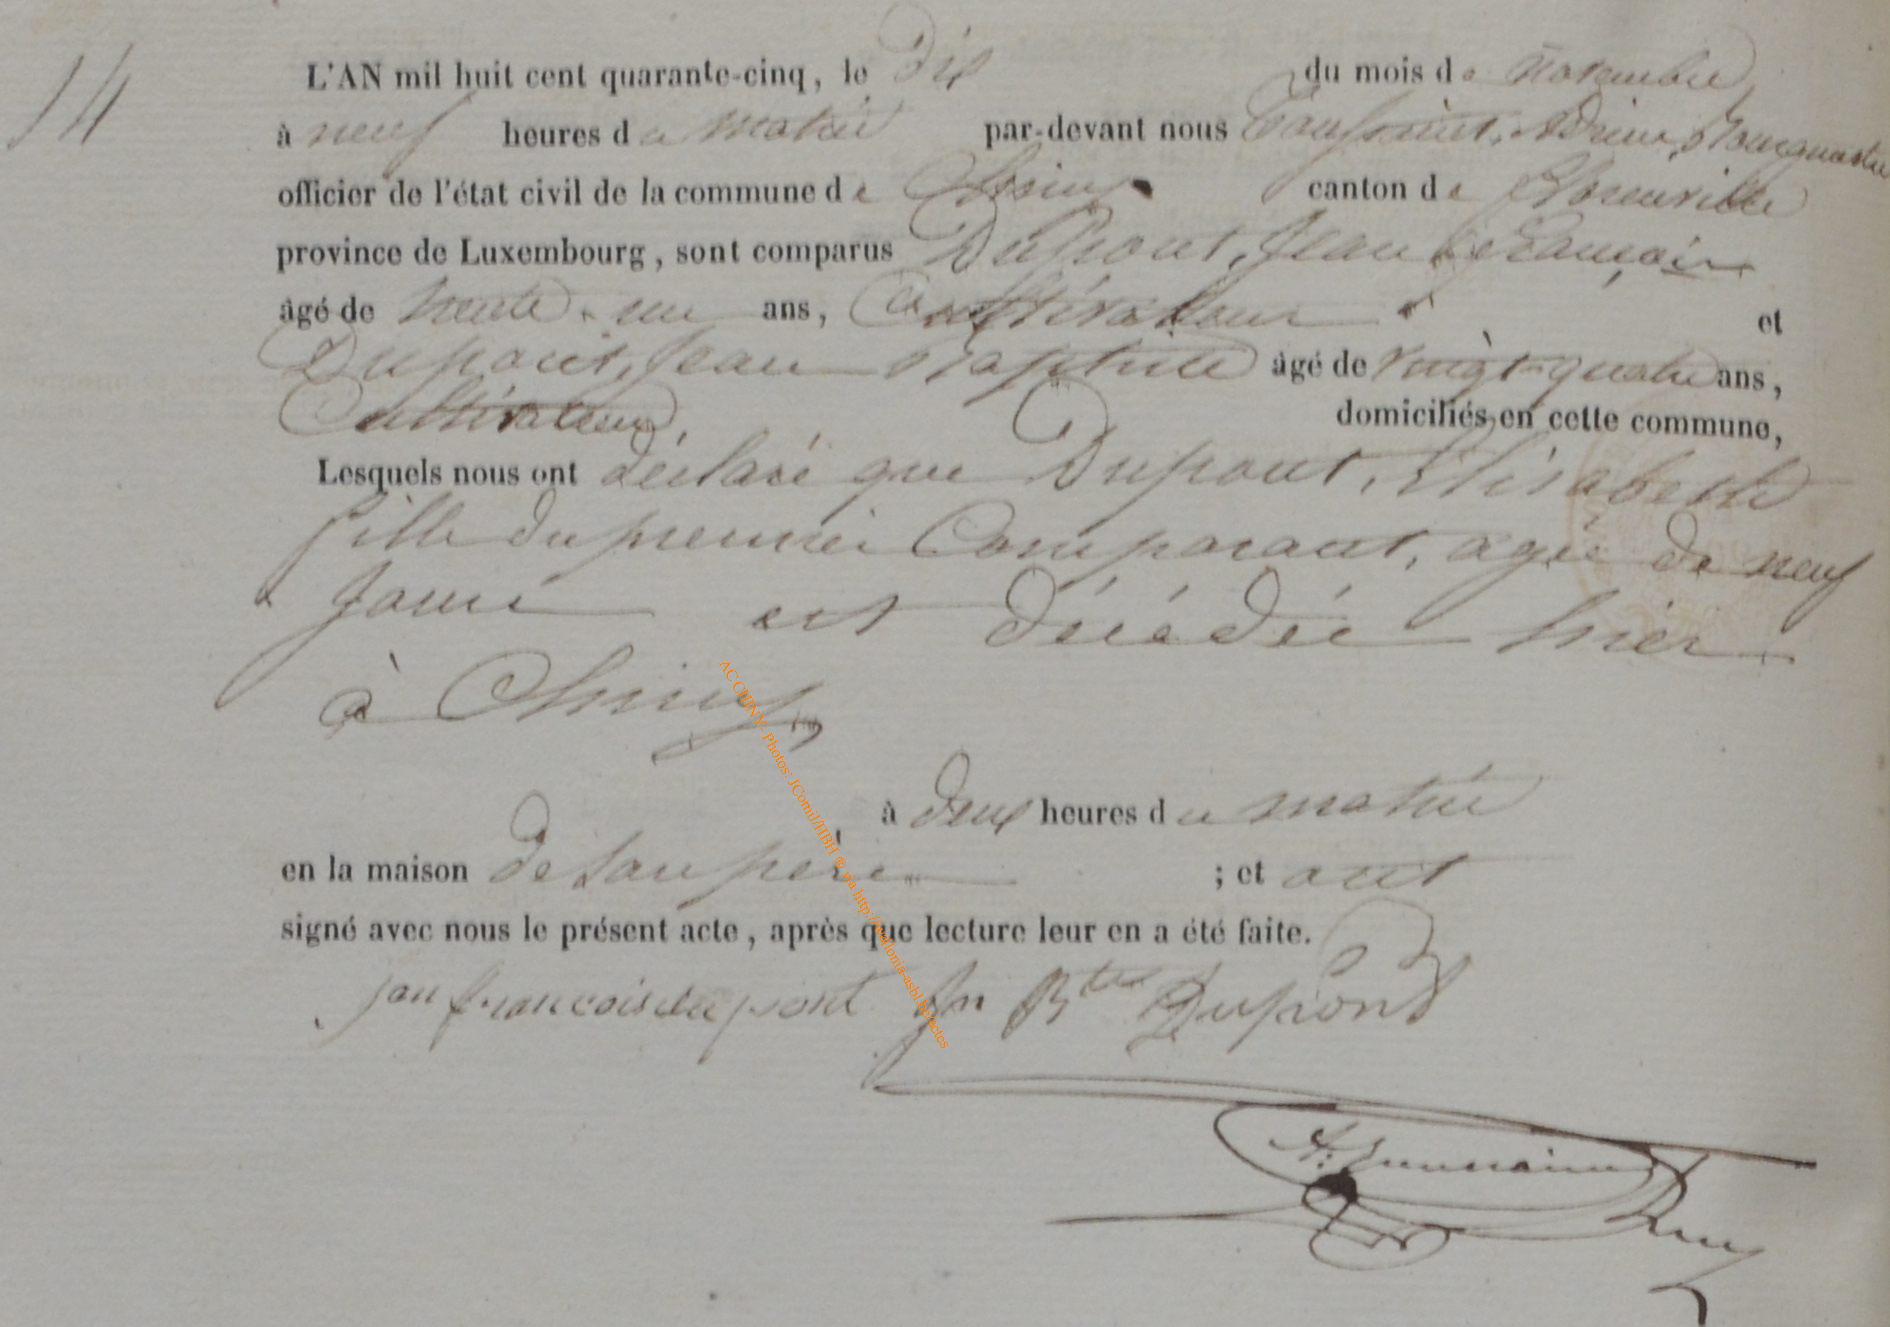 14
L'AN mil huit cent quarante-cinq, le Dix du mois de novembre
à neuf heures du matin par-devant nous Toussaint, Adrien, Bourguemestre
officier de l'état civil de la commune de Chiny canton de Florenville
province de Luxembourg, sont comparus Dupont, Jean François
âgé de trente-un ans, Cultivateur et
Dupont, Jean Baptiste âgé de vingt-quatre ans,
Cultivateur, domiciliés en cette commune,
Lesquels nous ont déclaré que Dupont, Elisabeth
fille du premier Comparant, agée de neuf
jours est décédée hier
à Chiny,
à deux heures du matin
en la maison de son père ; et ont
signé avec nous le présent acte, après que lecture leur en a été faite.
jan francois dupont Jn Bte Dupont
A. Toussaint
AC CHINY - Photos: JCornil/HBH